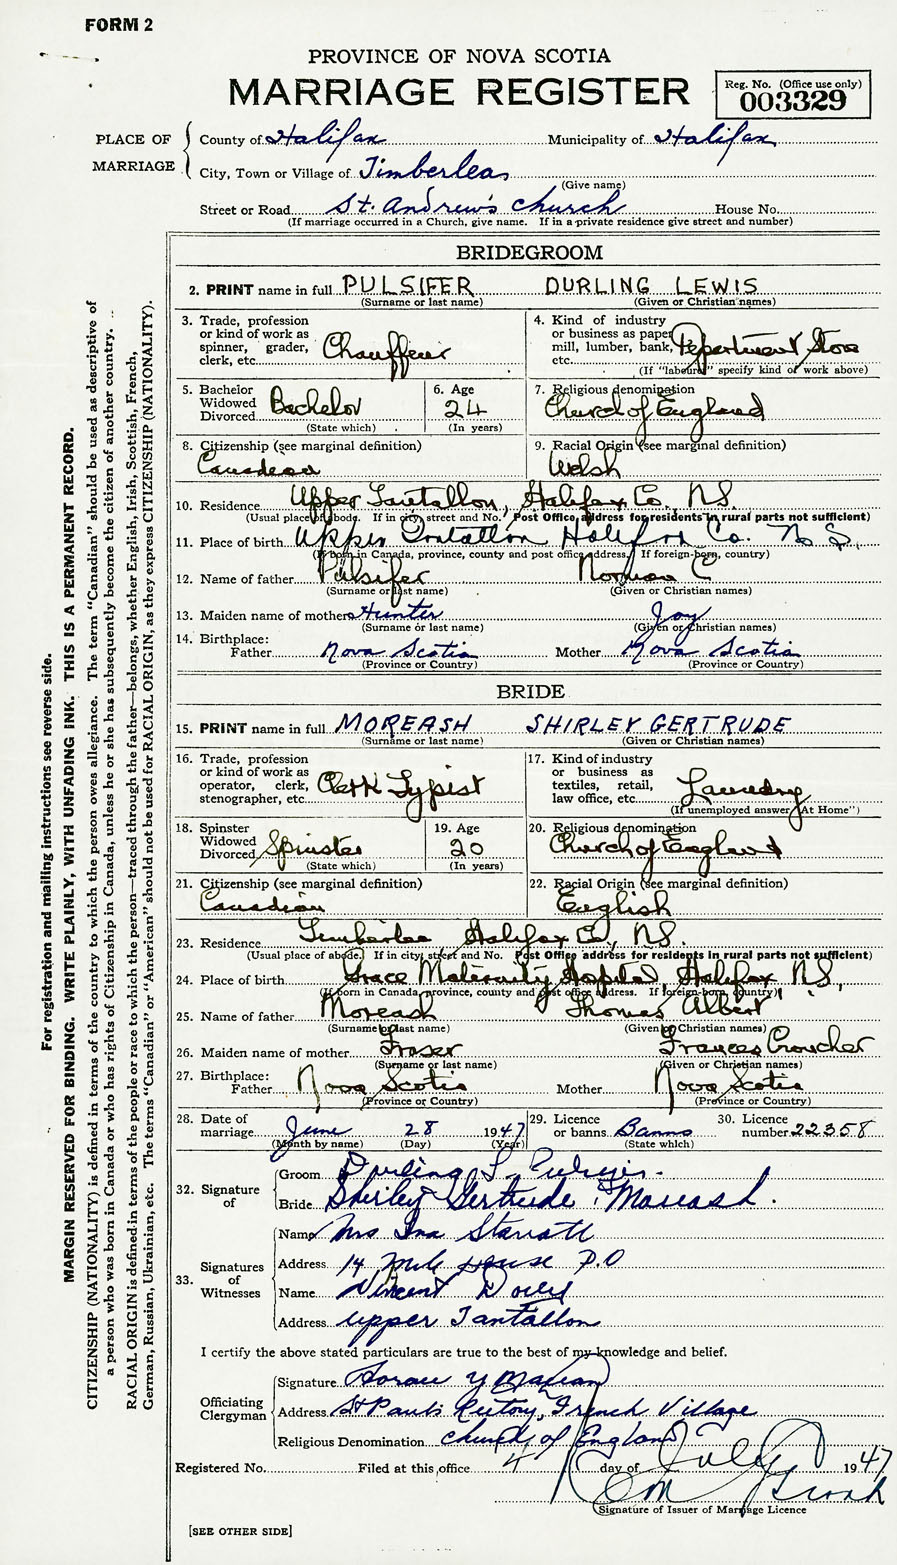 FORM 2
PROVINCE OF NOVA SCOTIA
MARRIAGE REGISTER
Reg. No. (Office use only)
003329
PLACE OF MARRIAGE
County of Halifax Municipality of Halifax
City, Town or Village of Timberlea
(Give name)
Street or Road St. Andrew's Church House No.
(If marriage occurred in a Church, give name. If in a private residence give street and number)
BRIDEGROOM
2. PRINT name in full PULSIFER DURLING LEWIS
(Surname or last name) (Given or Christian names)
3. Trade, profession or kind of work as spinner, grader, clerk, etc. Chauffeur
4. Kind of industry or business as paper mill, lumber, bank, etc. Department Store
(If "labourer" specify kind of work above)
5. Bachelor Widowed Divorced Bachelor
(State which)
6. Age 24
(In years)
7. Religious denomination
Church of England
8. Citizenship (see marginal definition)
Canadian
9. Racial Origin (see marginal definition)
Welsh
10. Residence Upper Tantallon, Halifax Co. N.S.
(Usual place of abode. If in city, street and No. Post Office address for residents in rural parts not sufficient)
11. Place of birth Upper Tantallon Halifax Co. N.S.
(If born in Canada, province, county and post office address. If foreign-born, country)
12. Name of father Pulsifer Norman C
(Surname or last name) (Given or Christian names)
13. Maiden name of mother Hunter Joy
(Surname or last name) (Given or Christian names)
14. Birthplace:
Father Nova Scotia Mother Nova Scotia
(Province or Country) (Province or Country)
BRIDE
15. PRINT name in full MOREASH SHIRLEY GERTRUDE
(Surname or last name) (Given or Christian names)
16. Trade, profession or kind of work as operator, clerk, stenographer, etc. Clerk Typist
17. Kind of industry or business as textiles, retail, law office, etc. Laundry
(If unemployed answer "At Home")
18. Spinster Widowed Divorced Spinster
(State which)
19. Age 20
(In years)
20. Religious denomination
Church of England
21. Citizenship (see marginal definition)
Canadian
22. Racial Origin (see marginal definition)
English
23. Residence Timberlea Halifax Co, N.S.
(Usual place of abode. If in city, street and No. Post Office address for residents in rural parts not sufficient)
24. Place of birth Grace Maternity Hospital, Halifax N.S.
(If born in Canada, province, county and post office address. If foreign-born, country)
25. Name of father Moreash Thomas Albert
(Surname or last name) (Given or Christian names)
26. Maiden name of mother Fraser Frances Croucher
(Surname or last name) (Given or Christian names)
27. Birthplace:
Father Nova Scotia Mother Nova Scotia
(Province or Country) (Province or Country)
28. Date of marriage June 28 1947
(Month by name) (Day) (Year)
29. Licence or banns Banns
(State which)
30. Licence number 22358
32. Signature of
Groom Durling L. Pulsifer.
Bride Shirley Gertrude Moreash.
33. Signatures of Witnesses
Name Mrs Ina Starratt
Address 14 Mile House P.O
Name Vincent
Address Upper Tantallon
I certify the above stated particulars are true to the best of my knowledge and belief.
Officiating Clergyman
Signature Horace Y
Address St Paul's Rectory, French Village
Religious Denomination Church of England
Registered No. Filed at this office 4 day of July 1947
Signature of Issuer of Marriage Licence
[SEE OTHER SIDE]
For registration and mailing instructions see reverse side.
MARGIN RESERVED FOR BINDING. WRITE PLAINLY, WITH UNFADING INK. THIS IS A PERMANENT RECORD.
CITIZENSHIP (NATIONALITY) is defined in terms of the country to which the person owes allegiance. The term "Canadian" should be used as descriptive of
a person who was born in Canada or who has rights of Citizenship in Canada, unless he or she has subsequently become the citizen of another country.
RACIAL ORIGIN is defined in terms of the people or race to which the person—traced through the father—belongs, whether English, Irish, Scottish, French,
German, Russian, Ukrainian, etc. The terms "Canadian" or "American" should not be used for RACIAL ORIGIN, as they express CITIZENSHIP (NATIONALITY).